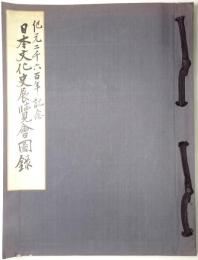 紀元二千六百年記念
日本文化史展覽會圖錄